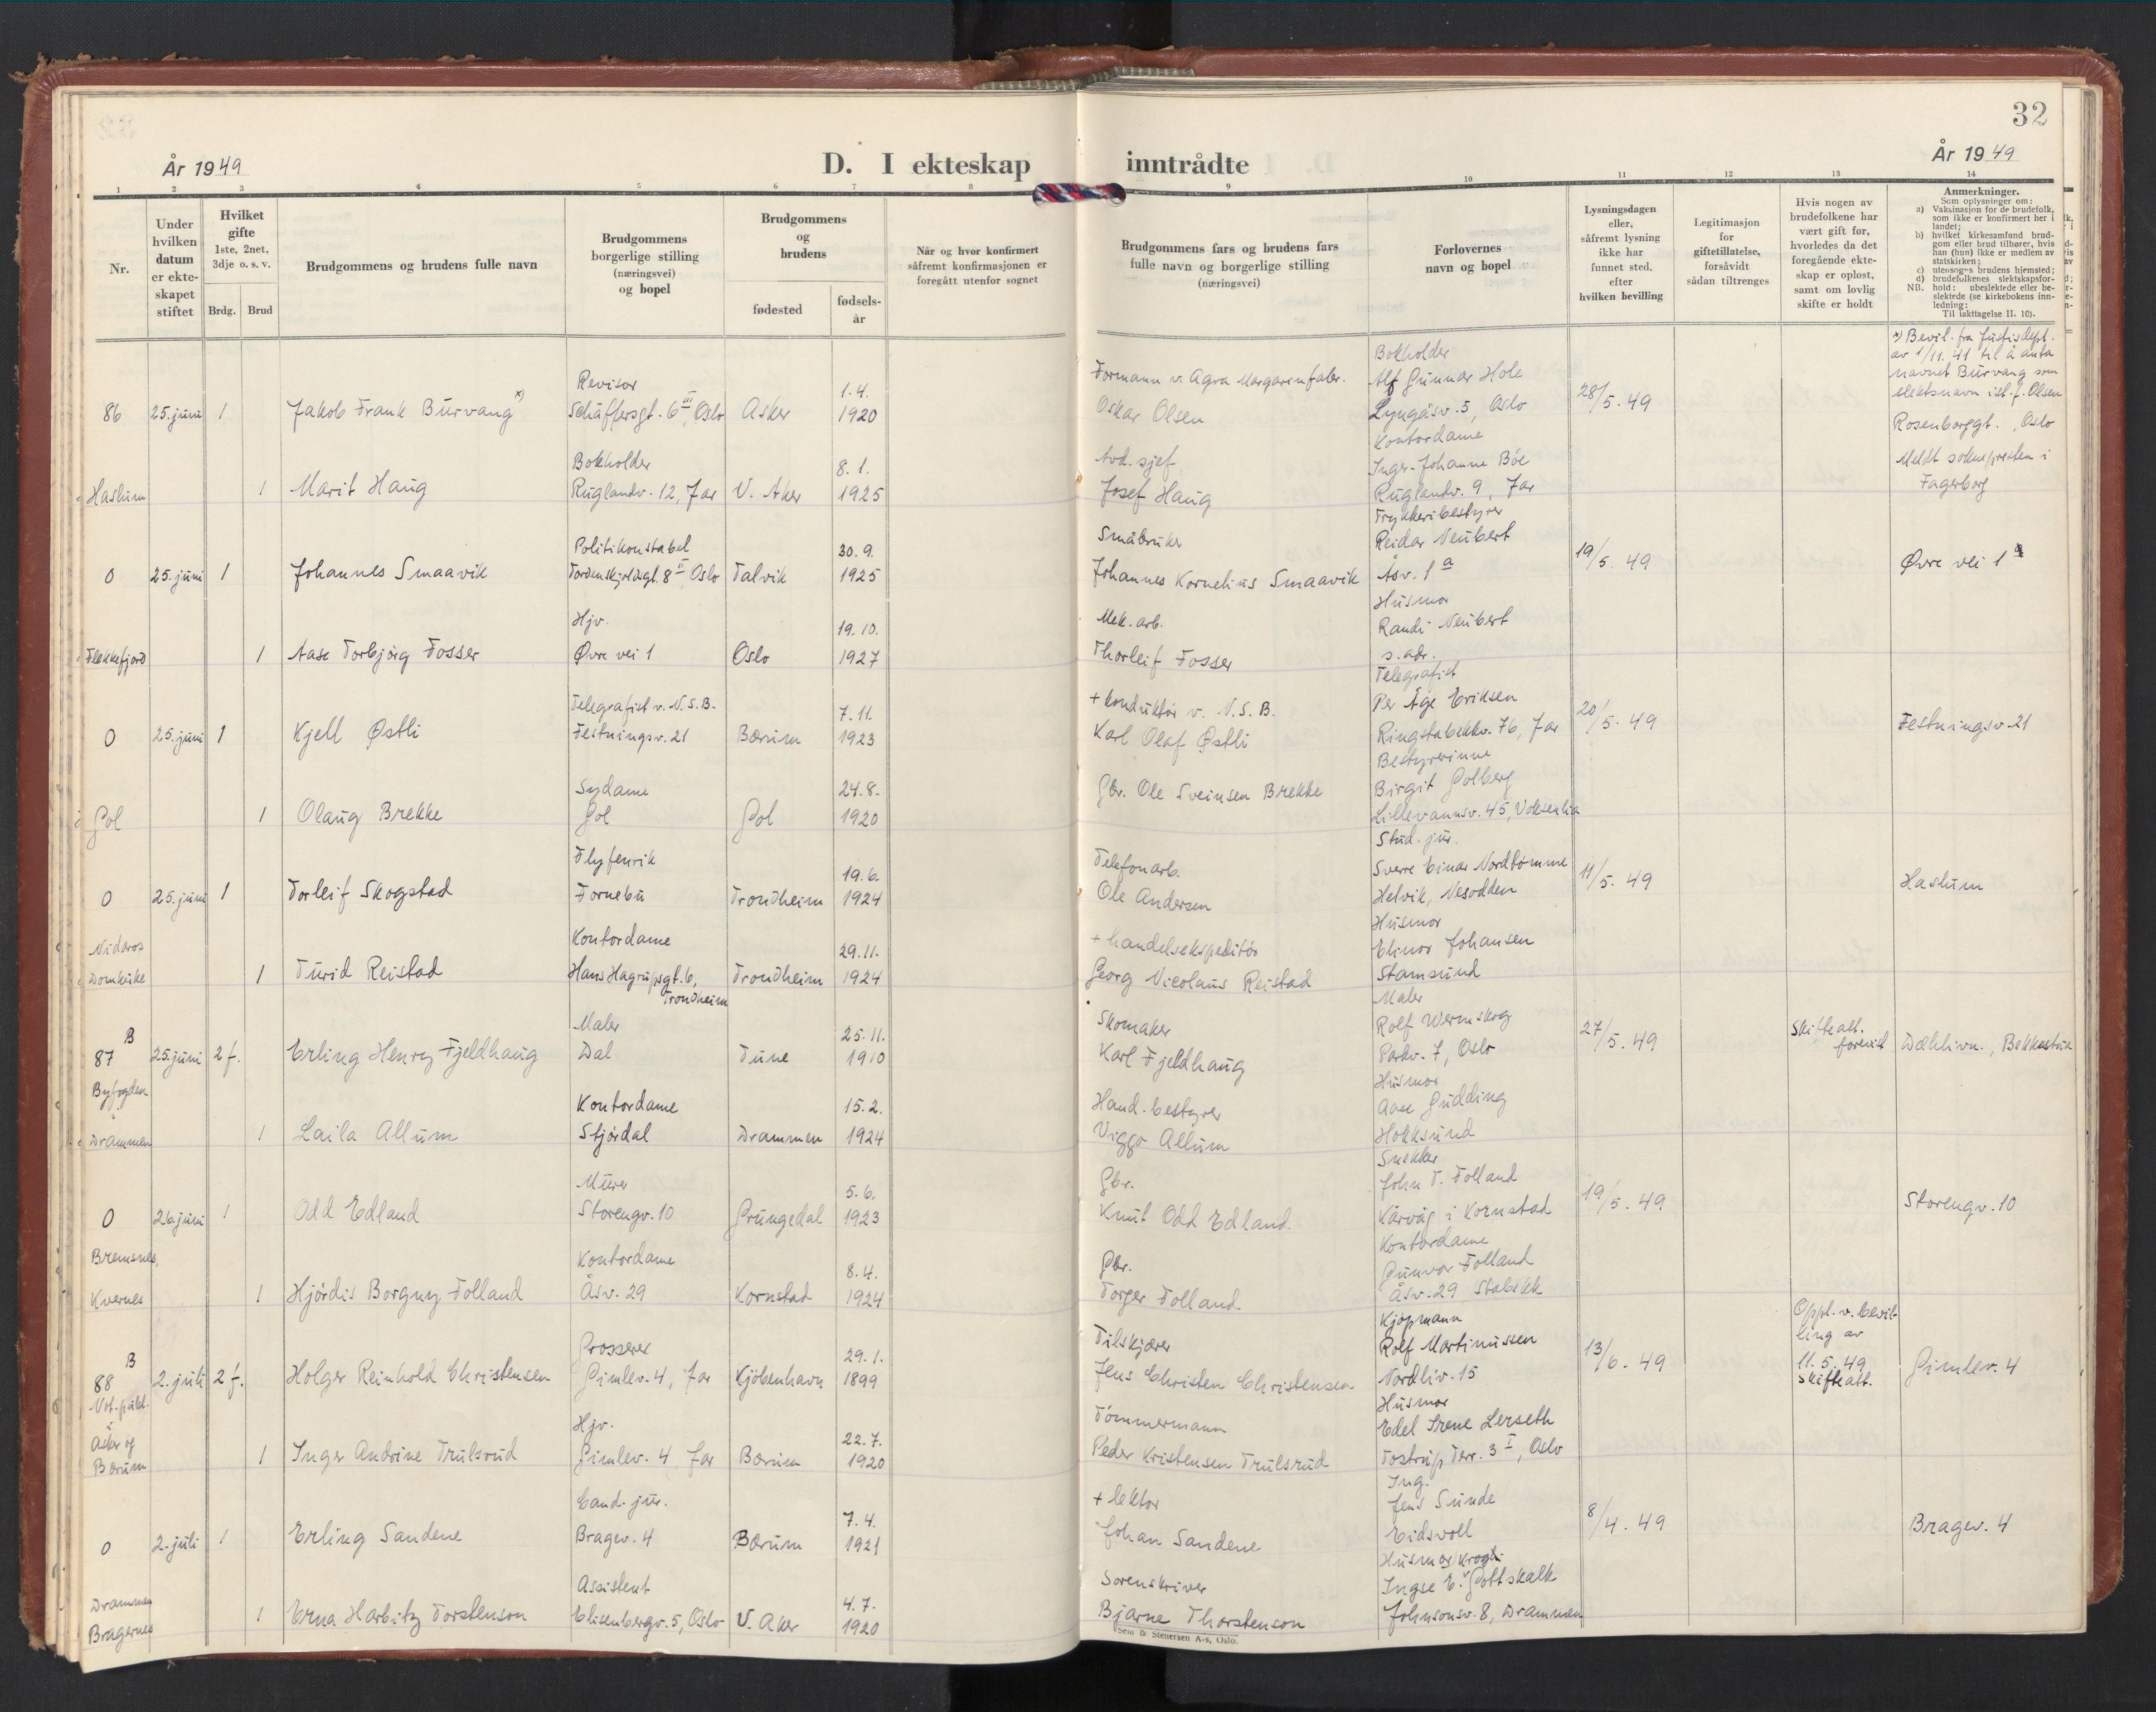 32
År 1949
D. I ekteskap inntrådte
År 1949
1 2 3 4 5 6 7 8 9 10 11 12 13 14
Nr.
Under hvilken datum er ekte- skapet stiftet
Hvilket gifte
1ste, 2net, 3dje o. s. v.
Brdg. Brud
Brudgommens og brudens fulle navn
Brudgommens borgerlige stilling (næringsvei) og bopel
Brudgommens og brudens
fødested
fødsels- år
Når og hvor konfirmert såfremt konfirmasjonen er foregått utenfor sognet
Brudgommens fars og brudens fars fulle navn og borgerlige stilling (næringsvei)
Forlovernes navn og bopel
Lysningsdagen eller, såfremt lysning ikke har funnet sted, efter hvilken bevilling
Legitimasjon for giftetillatelse, forsåvidt sådan tiltrenges
Hvis nogen av brudefolkene har vært gift før, hvorledes da det foregående ekte- skap er opløst, samt om lovlig skifte er holdt
Anmerkninger.
Som oplysninger om:
a) Vaksinasjon for de brudefolk, som ikke er konfirmert her i landet;
b) hvilket kirkesamfund brud- gom eller brud tilhører, hvis han (hun) ikke er medlem av statskirken;
c) utensogns brudens hjemsted;
d) brudefolkenes slektskapsfor- hold: ubeslektede eller be- slektede (se kirkebokens inn- ledning;
NB.
Til iakttagelse II. 10).
86 25. juni 1 Jakob Frank Burvang x)
Revisor
Schäffersgt. 6 III, Oslo
Asker
1.4.
1920
Formann v. Agra Margarinfabr.
Oskar Olsen
Bokholder
Alf Gunnar Hole
Lyngåsv. 5, Oslo
28/5. 49
x) Bevil. fra Justisdept.
av 1/11. 41 til å anta
navnet Burvang som
slektsnavn ist. f. Olsen
Rosenborggt. , Oslo
Haslum 1 Marit Haug
Bokholder
Ruglandv. 12, Jar
V. Aker
8.1.
1925
Avd. sjef
Josef Haug
Kontordame
Inger-Johanne Böe
Ruglandv. 9, Jar
Meldt soknepresten i
Fagerborg
0 25. juni 1 Johannes Smaavik
Politikonstabel
Tordenskjoldsgt. 8 II, Oslo
Talvik
30.9.
1925
Småbruker
Johannes Kornelius Smaavik
Trykkeribestyrer
Reidar Neubert
Åsv. 1 a
19/5. 49
Øvre vei 1 a
Flekkefjord 1 Aase Torbjörg Fosser
Hjv.
Øvre vei 1
Oslo
19.10.
1927
Mek. arb.
Thorleif Fosser
Husmor
Randi Neubert
s. adr.
0 25. juni 1 Kjell Østli
Telegrafist v. N.S.B.
Festningsv. 21
Bærum
7.11.
1923
+ konduktör v. N.S.B.
Karl Olaf Østli
Telegrafist
Per Åge Eriksen
Ringstabekkv. 76, Jar
20/5. 49
Festningsv. 21
Gol 1 Olaug Brekke
Sydame
Gol
Gol
24.8.
1920
Gbr. Ole Sveinsen Brekke
Bestyrerinne
Birgit Golberg
Lillevannsv. 45, Voksenlia
0 25. juni 1 Torleif Skogstad
Flyfenrik
Fornebu
Trondheim
19.6.
1924
Telefonarb.
Ole Andersen
Stud. jur.
Sverre Einar Nordtömme
Helvik, Nesodden
11/5. 49
Haslum
Nidaros
Domkirke 1 Turid Reistad
Kontordame
Hans Hagrupsgt. 6,
Trondheim
Trondheim
29.11.
1924
+ handelsekspeditör
Georg Nicolaus Reistad
Husmor
Elinor Johansen
Stamsund
B
87 25. juni 2 f. Erling Henry Fjeldhaug
Maler
Dal
Tune
25.11.
1910
Skomaker
Karl Fjeldhaug
Maler
Rolf Wermskog
Parkv. 7, Oslo
27/5. 49
Skifteatt.
forevist
Dæhlivn., Bekkestua
Byfogden
i
Drammen 1 Laila Allum
Kontordame
Stjördal
Drammen
15.2.
1924
Hand. bestyrer
Viggo Allum
Husmor
Aase Gudding
Hokksund
0 26. juni 1 Odd Edland
Murer
Storengv. 10
Grungedal
5.6.
1923
Gbr.
Knut Odd Edland.
Snekker
John T. Folland
Kårvåg i Kornstad
19/5. 49
Storengv. 10
Bremsnes,
Kvernes 1 Hjördis Borgny Folland
Kontordame
Åsv. 29
Kornstad
8.4.
1924
Gbr.
Torger Folland.
Kontordame
Gunvor Folland
Åsv. 29 Stabekk
B
88 2. juli 2 f. Holger Reinhold Christensen
Grosserer
Gimlev. 4, Jar
Kjöbenhavn
29.1.
1899
Tilskjærer
Jens Christen Christensen
Kjöpmann
Rolf Martinussen
Nordliv. 15
13/6. 49
Oppl. v. bevil-
ling av
11.5.49
Skifteatt.
Gimlev. 4
Not. publ.
i
Asker og
Bærum 1 Inger Andrine Trulsrud
Hjv.
Gimlev. 4, Jar
Bærum
22.7.
1920
Tömmermann
Peder Kristensen Trulsrud
Husmor
Edel Irene Lerseth
Tostrup Terr. 3 I, Oslo
0 2. juli 1 Erling Sandene
Cand. jur.
Bragev. 4
Bærum
7.4.
1921
+ lektor
Johan Sandene
Ing.
Jens Sunde
Eidsvoll
8/4. 49
Bragev. 4
Drammen
Bragernes 1 Erna Harbitz Torstenson
Assistent
Elisenbergv. 5, Oslo
V. Aker
4.7.
1920
Sorenskriver
Bjarne Thorstenson
Husmor Krogh
Ingse E. Gottskalk
Johnsonsv. 8, Drammen
Sem & Stenersen A-s, Oslo.